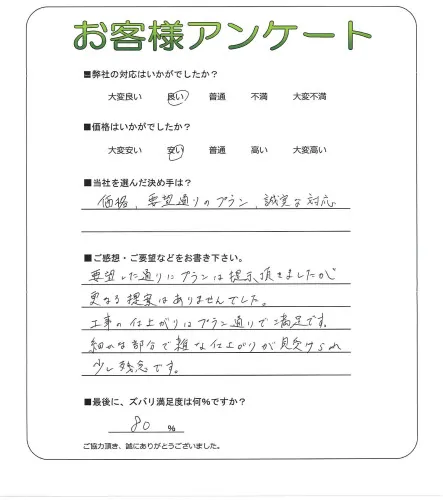 お客様アンケート
■弊社の対応はいかがでしたか？
大変良い 良い 普通 不満 大変不満
■価格はいかがでしたか？
大変安い 安い 普通 高い 大変高い
■当社を選んだ決め手は？
価格、要望通りのプラン、誠実な対応
■ご感想・ご要望などをお書き下さい。
要望した通りにプランは提示頂きましたが
更なる提案はありませんでした。
工事の仕上がりはプラン通りで満足です。
細かな部分で雑な仕上がりが見受けられ
少し残念です。
■最後に、ズバリ満足度は何%ですか？
80 %
ご協力頂き、誠にありがとうございました。